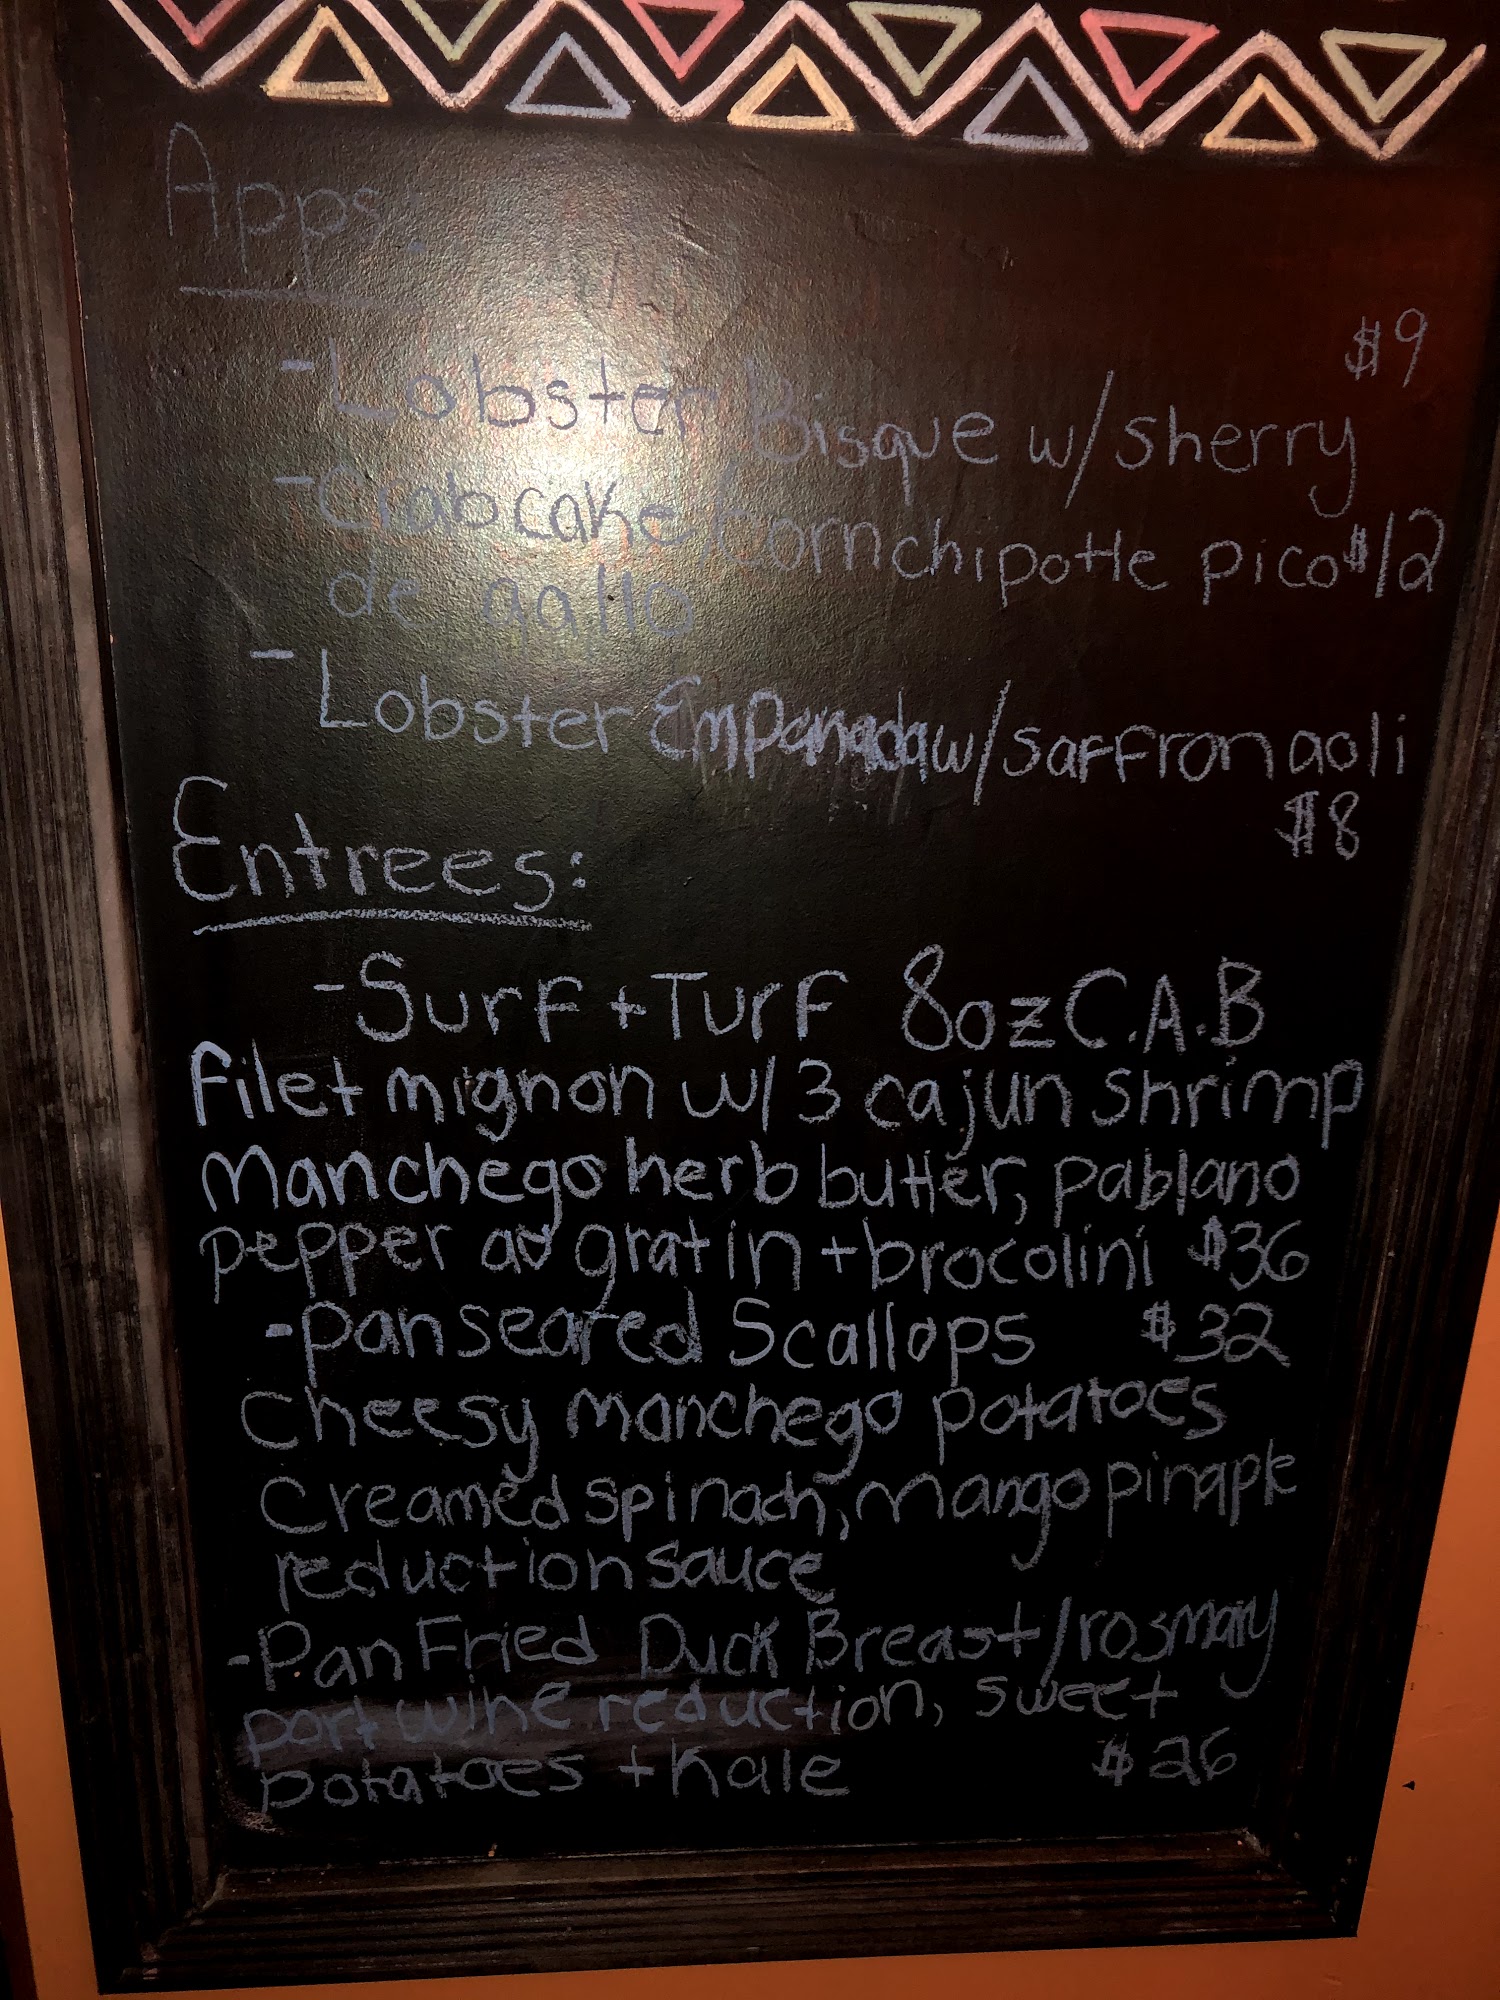 Apps:
$9
-Lobster Bisque w/sherry
-Crabcake/corn chipotle pico $12
de gallo
-Lobster Empanada w/saffron aoli
$8
Entrees:
-Surf + Turf 8oz C.A.B
Filet mignon w/ 3 cajun shrimp
Manchego herb butter, pablano
pepper au gratin + brocolini $36
-pan seared Scallops $32
Cheesy manchego potatoes
Creamed spinach, mango pinaple
reduction sauce
-Pan Fried Duck Breast/rosmary
port wine reduction, sweet
potatoes + Kale $26